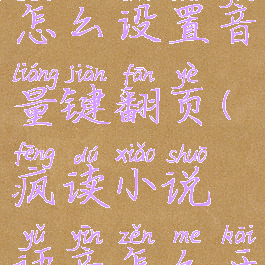 怎么设置音
liáng jiàn fān yè
量键翻页(
fēng dú xiǎo shuō
疯读小说
yǔ yīn zěn me kāi
语音怎么开